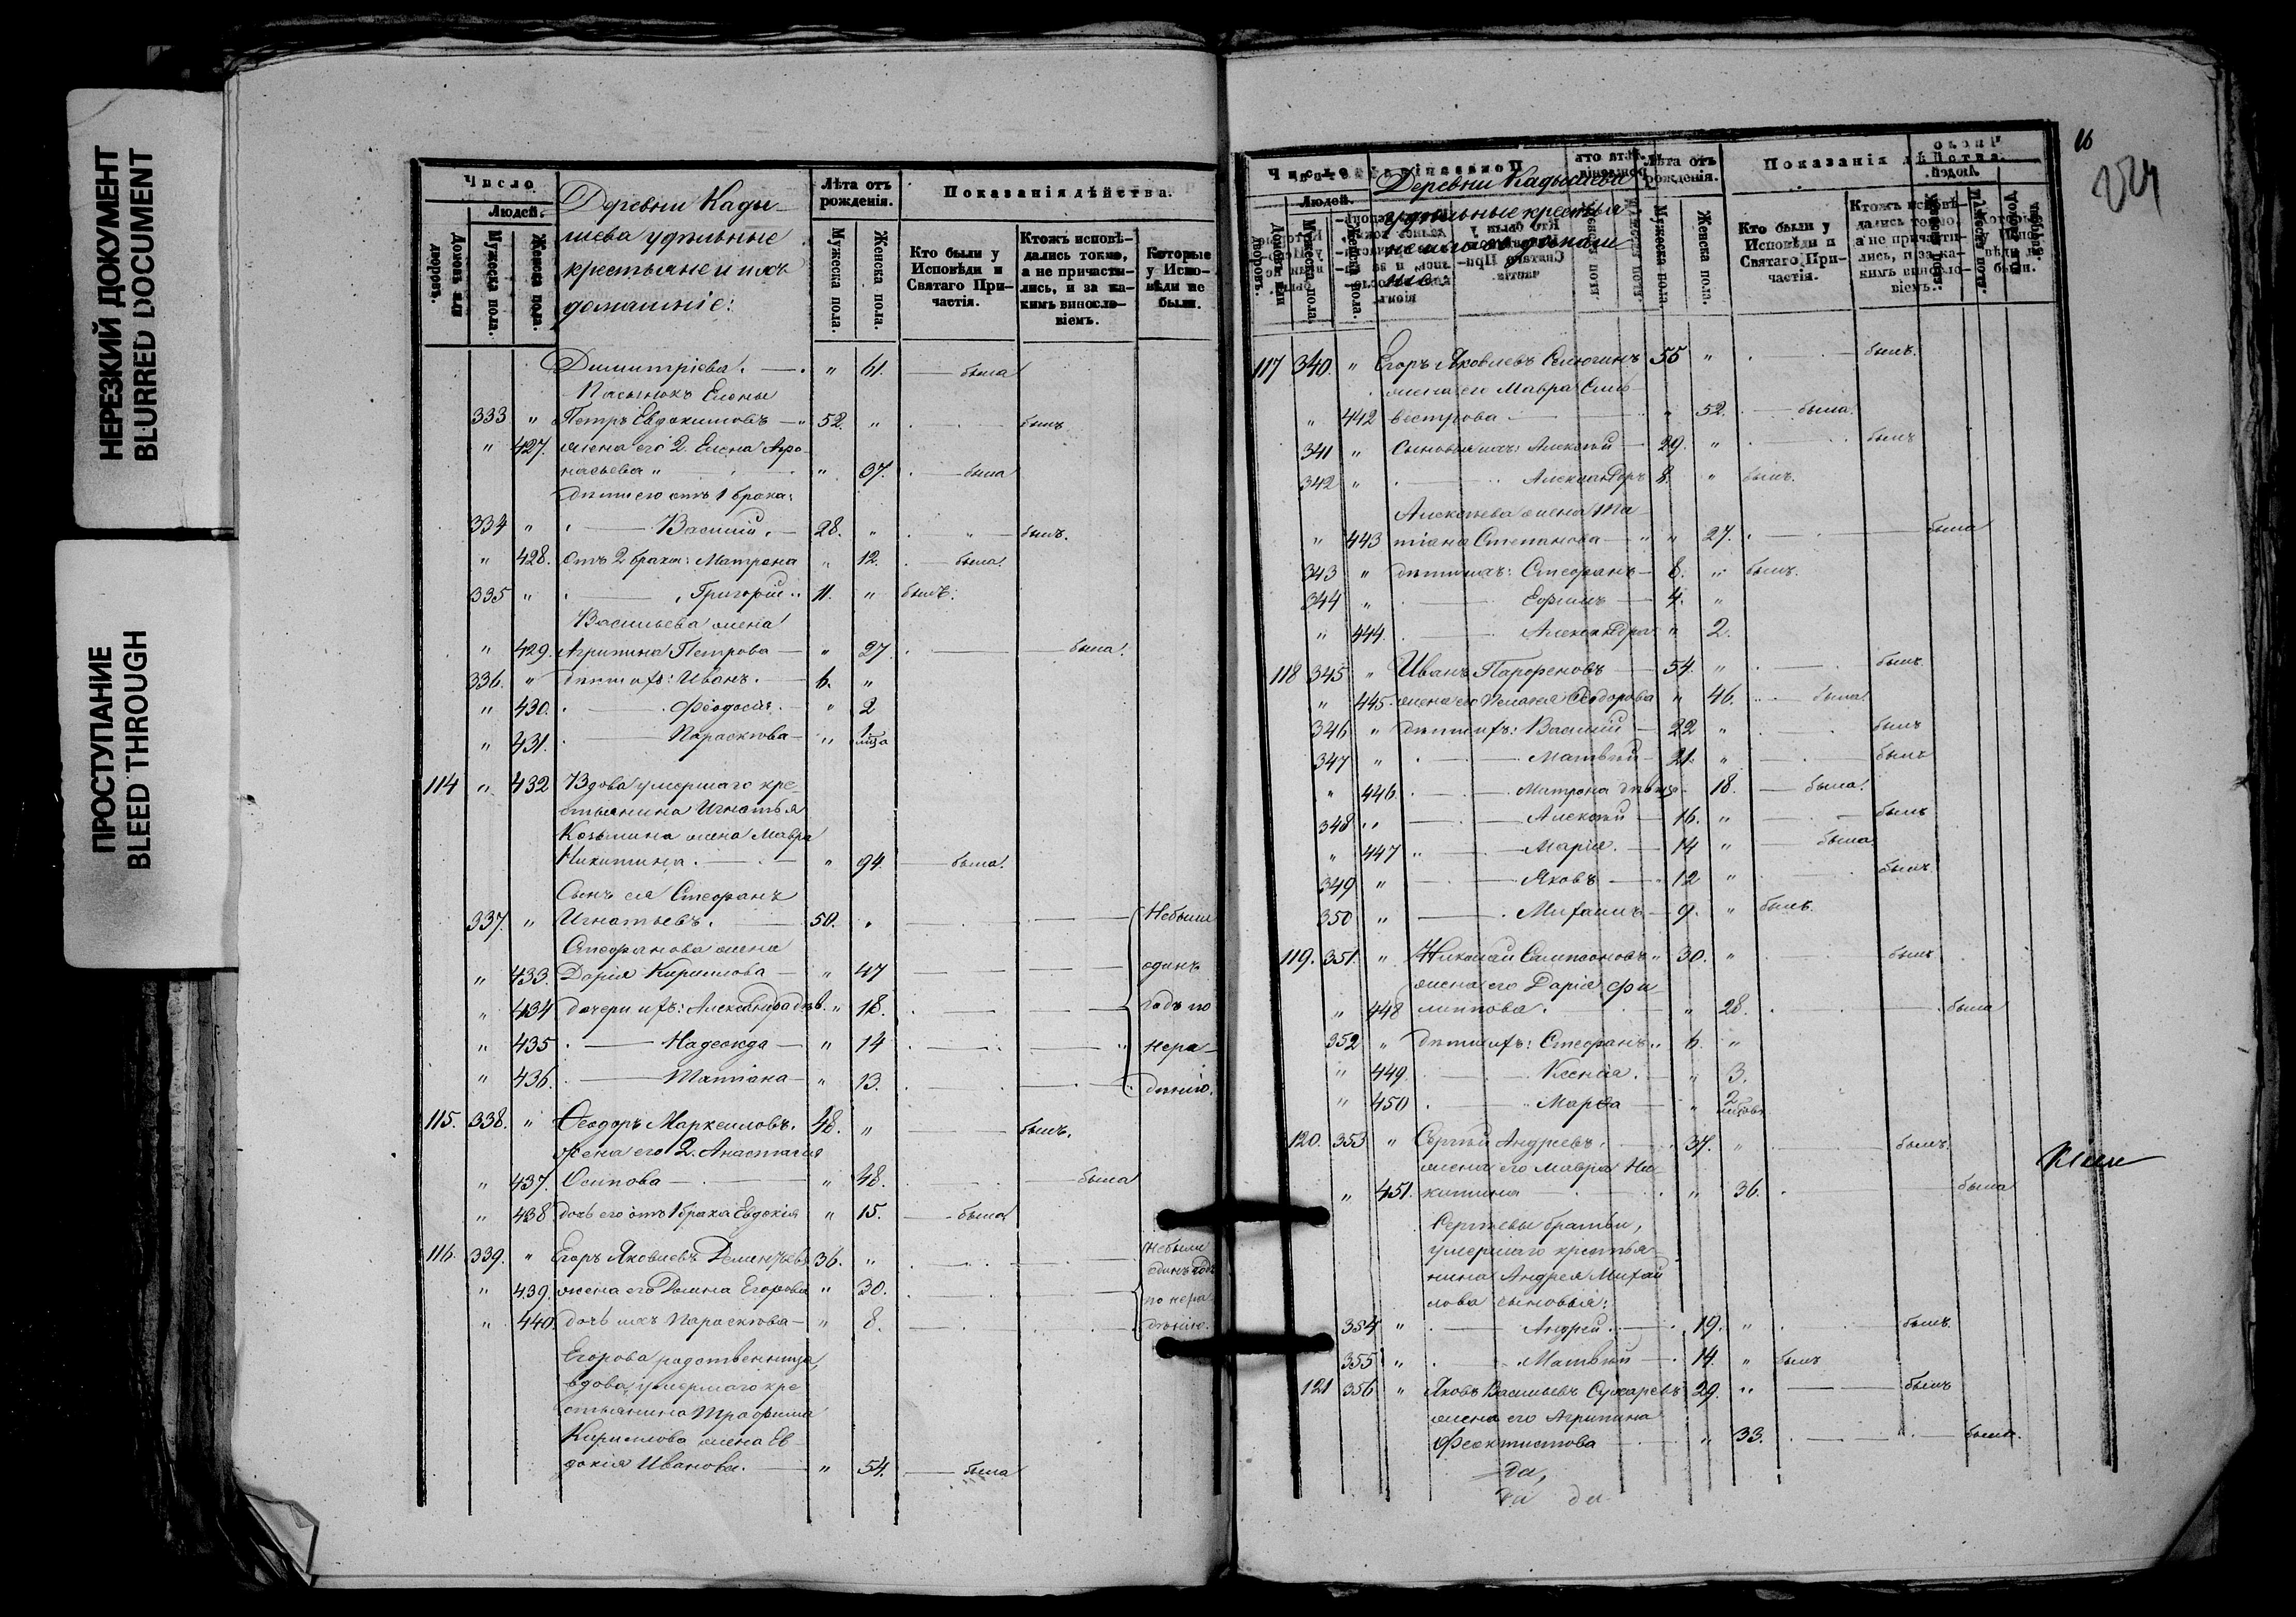 НЕРЕЗКИЙ ДОКУМЕНТ
BLURRED DOCUMENT
ПРОСТУПАНИЕ
BLEED THROUGH
Число
Людей.
Домовъ или дворовъ.
Мужеска пола.
Женска пола.
Деревни Кады-
шева удѣльные
крестьяне и ихъ
домашніе:
Лѣта отъ рожденія.
Мужеска пола.
Женска пола.
Показанія дѣйства.
Кто были у Исповѣди и Святаго Причастія.
Ктожъ исповѣдались токмо, а не причастились, и за какимъ винословіемъ.
Которые у Исповѣди не были.
Димитріева. — " 61. — была
Пасынокъ Елены
333 " Петръ Евдокимовъ — 52. " — былъ
" 427. жена его 2. Елена Афо-
насьева " — " 37. — была
дѣти его отъ 1 брака:
334 " — Василій. — 28. " — былъ.
" 428. отъ 2 брака: Матрона " 12. — была.
335 " — Григорій " 11. " былъ.
Васильева жена
" 429. Агрипина Петрова — " 27. — была.
336. " дѣти ихъ: Иванъ. — 6. "
" 430. — Феодосія. — " 2
" 431. — Параскева — " 1
114 " 432 Вдова умершаго кре-
стьянина Игнатья
Козьмина жена Мавра
Никитина. — " 94. — была.
Сынъ ея Стефанъ
337. " Игнатьевъ. — 50. " — Небыли
Стефанова жена
" 433. Дарія Кирилова — " 47 — одинъ
" 434 дочери ихъ: Александра дѣв. " 18. — годъ по
" 435 — Надежда — " 14 — нера-
" 436. — Татіана — " 13. — дѣнію.
115. 338. " Феодоръ Маркелловъ. 48. " — былъ.
Жена его 2. Анастасія
" 437. Осипова — " 48. — была
" 438 дочь его отъ 1 брака Евдокія " 15. — была
116. 339. " Егоръ Яковлевъ Дементьевъ 36. " — Небыли
одинъ годъ
" 439. жена его Домна Егорова " 30. — по нера-
" 440. дочь ихъ Параскева — " 8. — дѣнію.
Егорова родственница,
вдова умершаго кре-
стьянина Трофима
Кирилова жена Ев-
докія Иванова. — " 54. — была
16
Число
Людей.
Домовъ или дворовъ.
Мужеска пола.
Женска пола.
Деревни Кадышева
удѣльные крестья-
не и ихъ домаш-
ніе:
Лѣта отъ рожденія.
Мужеска пола.
Женска пола.
Показанія дѣйства.
Кто были у Исповѣди и Святаго Причастія.
Ктожъ исповѣдались токмо, а не причастились, и за какимъ винословіемъ.
117 340. " Егоръ Яковлевъ Селюгинъ 55 " — былъ.
жена его Мавра Силь-
" 442 вестрова — " 52. — была.
341 " Сыновья ихъ: Алексѣй — 29. " — былъ
342 " — Александръ 8. " былъ.
Алексѣева жена Та-
" 443 тіана Степанова — " 27. — была
343 " дѣти ихъ: Стефанъ — 8. " былъ.
344 " — Ефимъ — 4. "
" 444. — Александра " 2.
118 345 " Иванъ Парфеновъ — 54. " — былъ
" 445. жена его Пелагея Феодорова " 46. — была.
346 " дѣти ихъ: Василій — 22 " — былъ
347 " — Матвѣй — 21. " — былъ
" 446. — Матрона дѣвица 18. — была.
348 " — Алексѣй — 16. " — былъ
" 447 " — Марія. — 14 " — была
349 " — Яковъ — 12 " — былъ.
350 " — Михаилъ — 9. " былъ.
119. 351. " Николай Симеоновъ " 30. " — былъ
жена его Дарія Фи-
" 448 липпова. — " 28. — была
352 " дѣти ихъ: Стефанъ " 6. "
" 449. — Ксенія. — " 3.
" 450 — Марфа — " 2
120. 353 " Сергѣй Андреевъ. — 37. " — былъ.
жена его Мавра Ни-
" 451. китина — " 36. — была
Сергѣевы братья,
умершаго крестья-
нина Андрея Михай-
лова сыновья:
354 " — Андрей. — 19. " — былъ.
355 " — Матвѣй — 14. " былъ
121 356 " Яковъ Васильевъ Сухаревъ 29. " — былъ
жена его Агрипина
Феоктистова — " 33. — была.
да,
да да